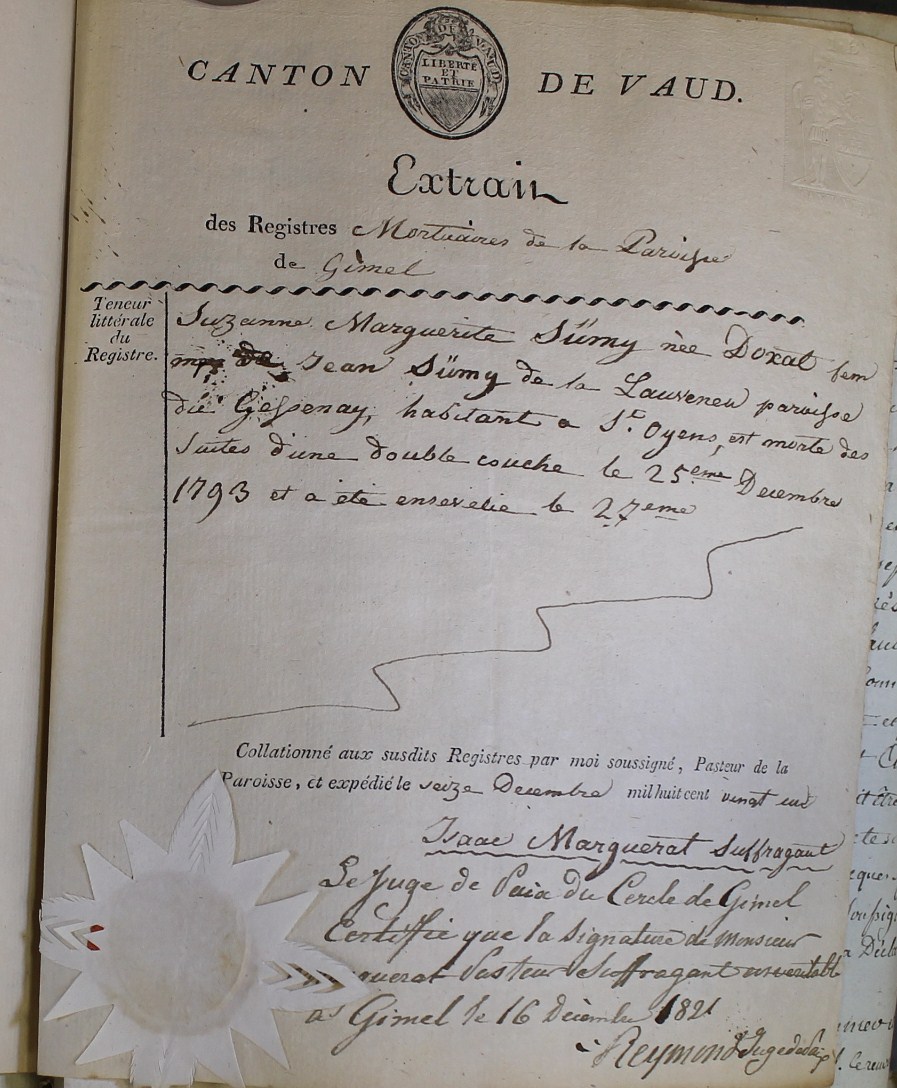 CANTON DE VAUD.
CANTON DE VAUD
LIBERTÉ
ET
PATRIE
Extrait
des Registres Mortuaires de la Paroisse
de Gimel
Teneur
littérale
du
Registre.
Suzanne Marguerite Sümy née Doxat fem
Jean Sümy de la Lauvenen paroisse
du Gessenay, habitant a St. Oyens, est morte des
suites d'une double couche le 25eme Decembre
1793 et a été ensevelie le 27eme
Collationné aux susdits Registres par moi soussigné, Pasteur de la
Paroisse, et expédié le seize Decembre mil huit cent vingt un
Isaac Marguerat Suffragant
Le Juge de Paix du Cercle de Gimel
Certiffie que la Signature de Monsieur
guerat Pasteur Suffragant
a Gimel le 16 Décembre 1821
Reymond Juge de Paix